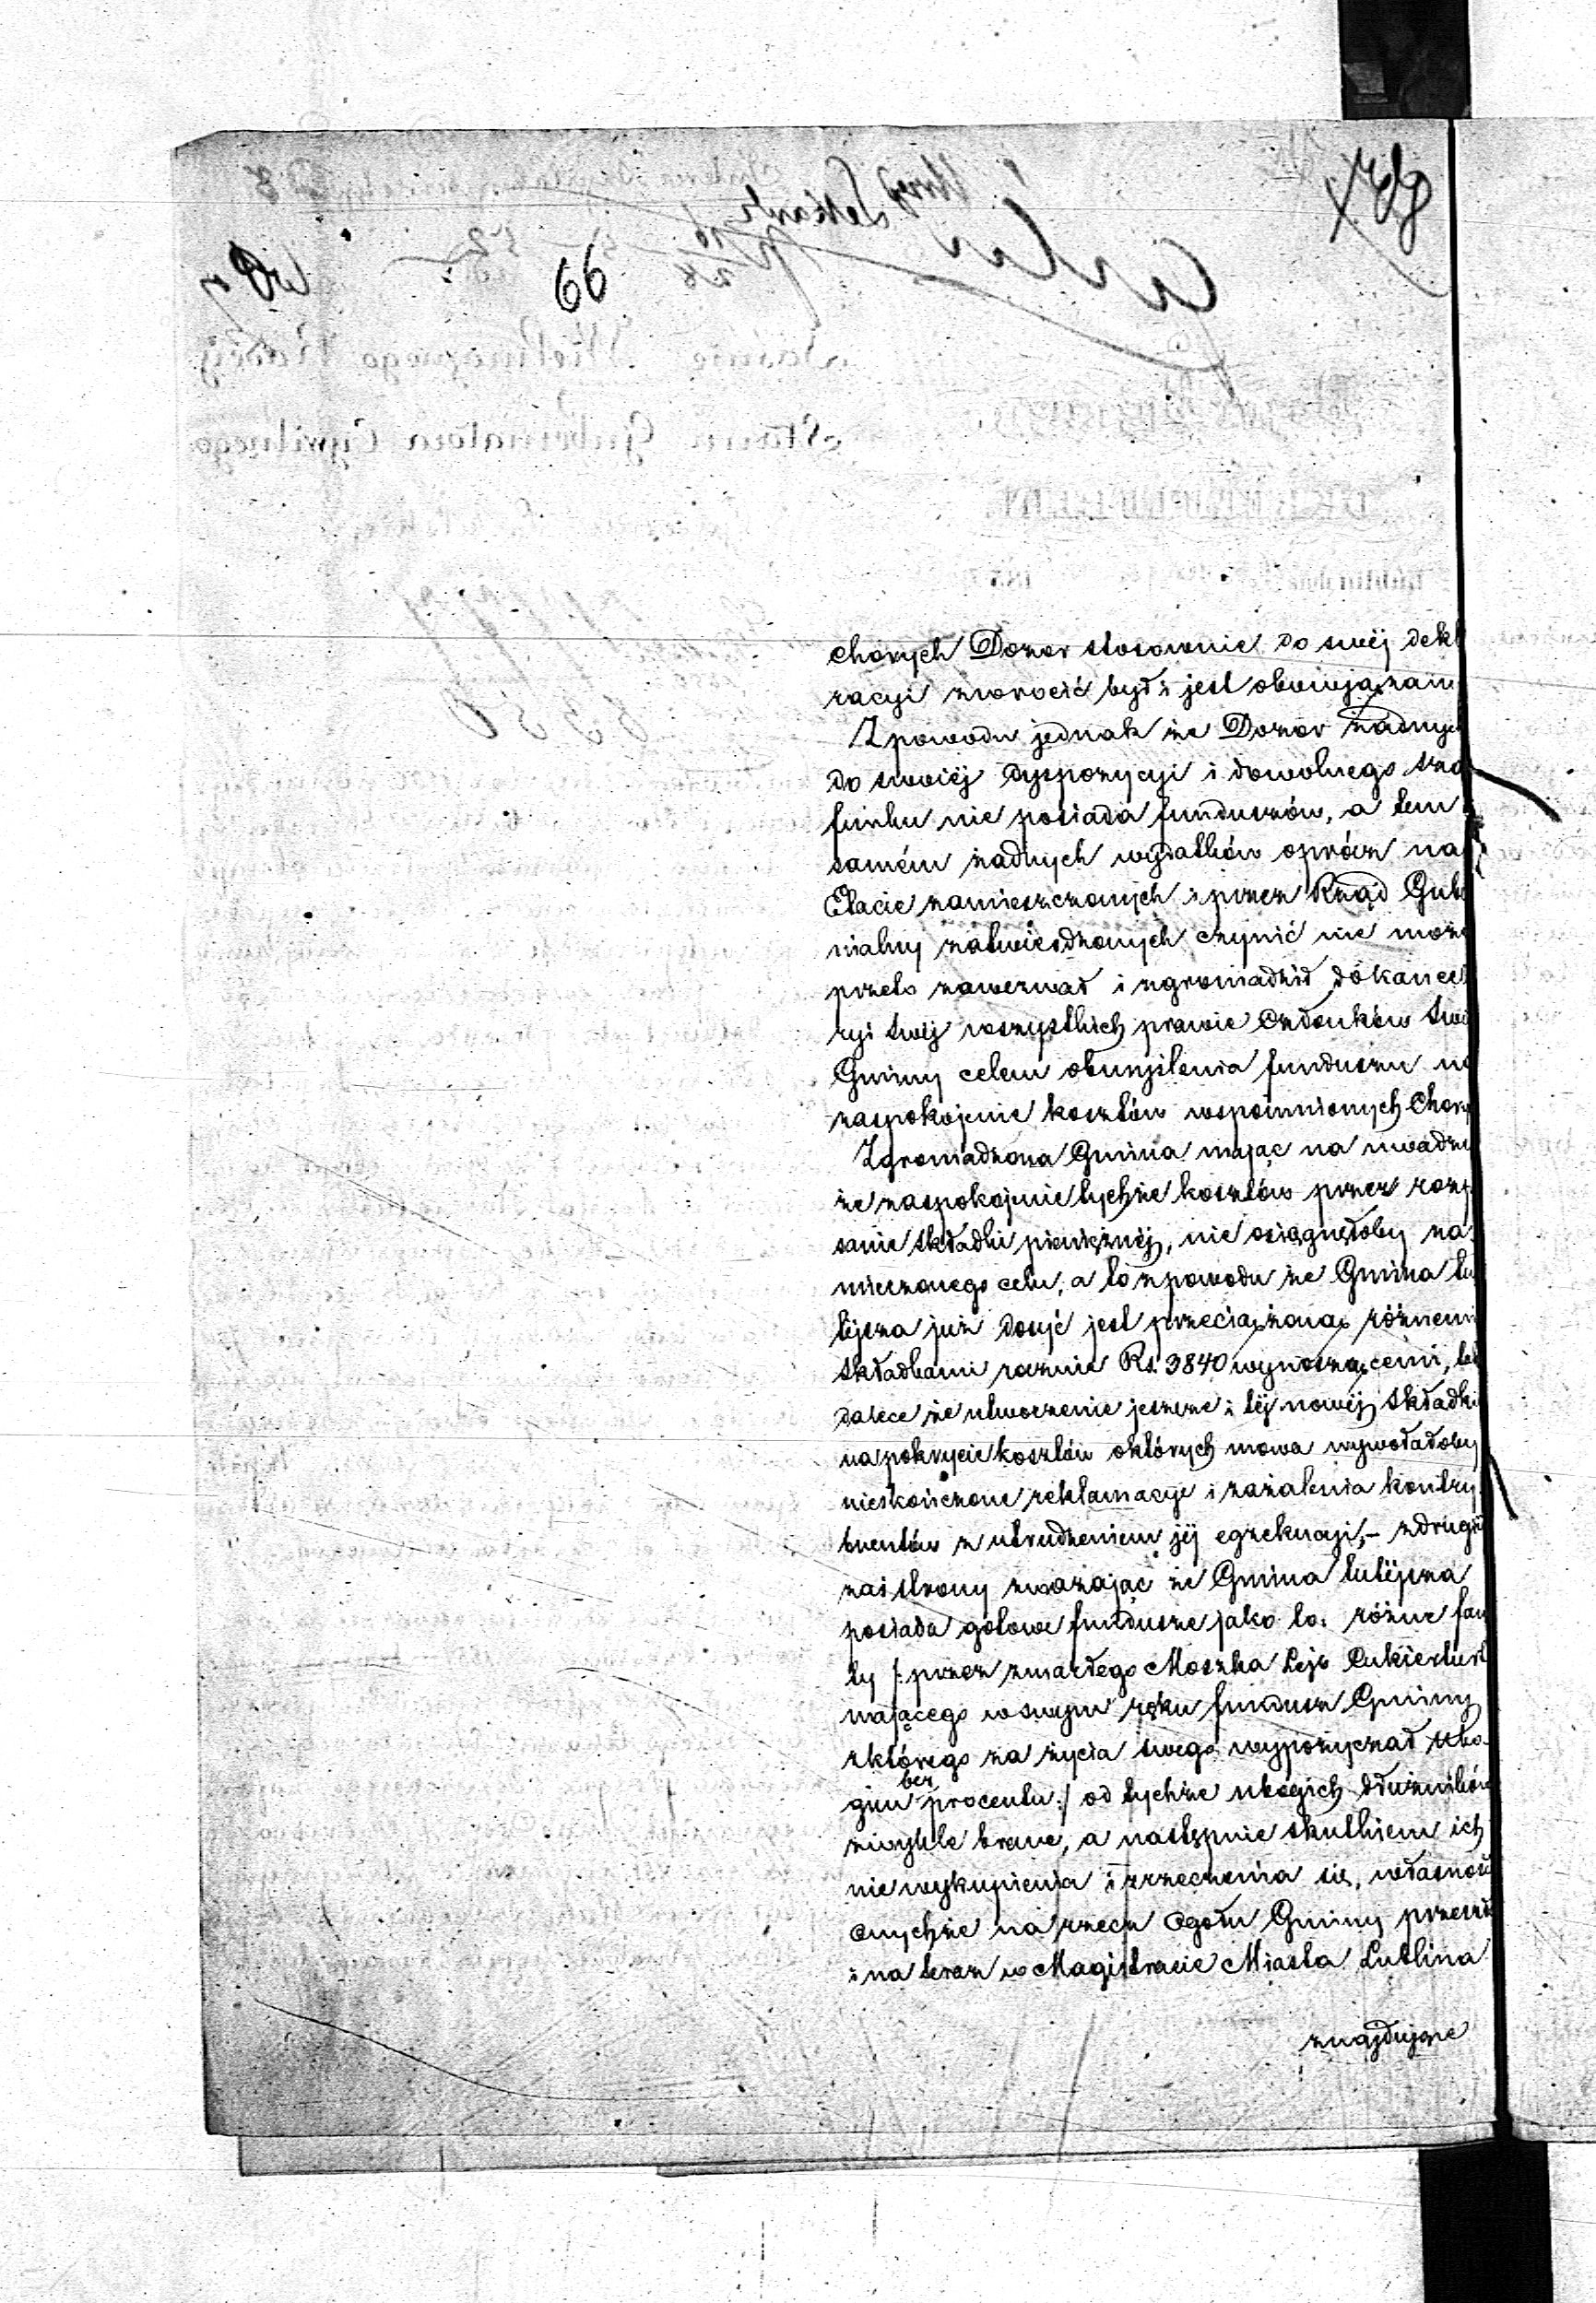 66
chorych Dozor stosownie do swéj dekl
racyi zwrócić był i jest obowiązany
Z powodu jednak że Dozór żadnych
do swoiéj dyspozycyi i dowolnego sza
funku nie posiada funduszów, a tem
samém żadnych wydatków oprócz na
Etacie zamieszczonych i przez Rząd Gube
nialny zatwierdzonych czynić nie może
przeto zawezwał i zgromadził do kance
ryi swéj wszystkich prawie Członków swé
Gminy celem obmyślenia funduszu na
zaspokojenie kosztów wspomnionych Chory
Zgromadzona Gmina mając na uwadze
że zaspokojenie tychże kosztów przez rozp
sanie składki pieniężnéj, nie osiągnęłoby za
mierzonego celu, a to z powodu że Gmina tu
téjsza już dosyć jest przeciążoną różnemi
składkami rocznie Rs. 3840 wynoszącemi, tak
dalece że utworzenie jeszcze i téj nowéj składki
na pokrycie kosztów o których mowa wywołałoby
nieskończone reklamacye i zażalenia kontry
buentów z utrudzeniem jéj egzekucyi, – z drugiéj
zaś strony zważając że Gmina tutéjsza
posiada gotowe fundusze jako to: różne fan
ty /: przez zmarłego Moszka Lejb Cukier
mającego w swym ręku fundusz Gminy
z którego za życia swego wypożyczał ubo
gim bez procentu :/ od tychże ubogich dłużników
zwykle brane, a następnie skutkiem ich
nie wykupienia i zrzeczenia się, własność
onychże na rzecz Ogółu Gminy przeszła
i na teraz w Magistracie Miasta Lublina
znajdujące